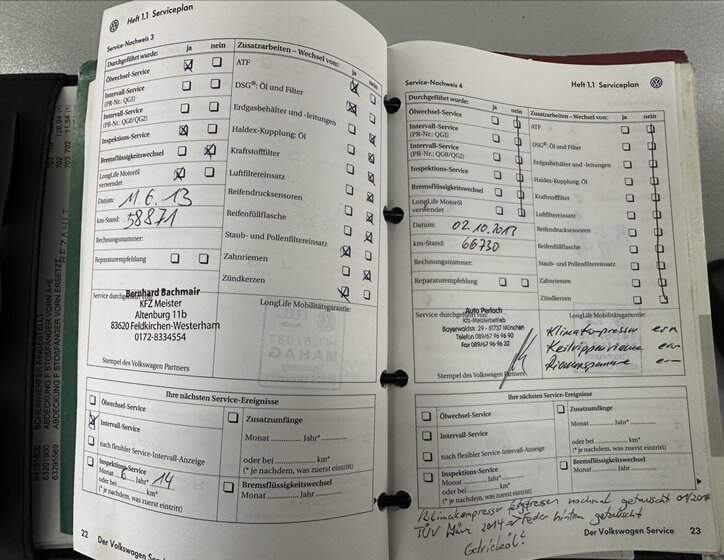 Heft 1.1 Serviceplan
Service-Nachweis 3
Durchgeführt wurde: ja nein
Ölwechsel-Service
Intervall-Service
(PR-Nr.: QGI)
Intervall-Service
(PR-Nr.: QG0/QG2)
Inspektions-Service
Bremsflüssigkeitswechsel
LongLife Motoröl
verwendet
Datum: 11.6.13
km-Stand: 58871
Rechnungsnummer:
Reparaturempfehlung
Zusatzarbeiten – Wechsel von: ja nein
ATF
DSG®: Öl und Filter
Erdgasbehälter und -leitungen
Haldex-Kupplung: Öl
Kraftstofffilter
Luftfiltereinsatz
Reifendrucksensoren
Reifenfüllflasche
Staub- und Pollenfiltereinsatz
Zahnriemen
Zündkerzen
Service durchgeführt von:
Bernhard Bachmair
KFZ Meister
Altenburg 11b
83620 Feldkirchen-Westerham
0172-8334554
Stempel des Volkswagen Partners
LongLife Mobilitätsgarantie:
Ihre nächsten Service-Ereignisse
Ölwechsel-Service
Intervall-Service
nach flexibler Service-Intervall-Anzeige
Inspektions-Service
Monat 6 Jahr* 14
oder bei km*
(* je nachdem, was zuerst eintritt)
Zusatzumfänge
Monat Jahr*
oder bei km*
(* je nachdem, was zuerst eintritt)
Bremsflüssigkeitswechsel
Monat Jahr
22 Der Volkswagen Service
Service-Nachweis 4
Heft 1.1 Serviceplan
Durchgeführt wurde: ja nein
Ölwechsel-Service
Intervall-Service
(PR-Nr.: QGI)
Intervall-Service
(PR-Nr.: QG0/QG2)
Inspektions-Service
Bremsflüssigkeitswechsel
LongLife Motoröl
verwendet
Datum: 02.10.2013
km-Stand: 66730
Rechnungsnummer:
Reparaturempfehlung
Zusatzarbeiten – Wechsel von: ja nein
ATF
DSG®: Öl und Filter
Erdgasbehälter und -leitungen
Haldex-Kupplung: Öl
Kraftstofffilter
Luftfiltereinsatz
Reifendrucksensoren
Reifenfüllflasche
Staub- und Pollenfiltereinsatz
Zahnriemen
Zündkerzen
Service durchgeführt von:
Auto Perlach
Kfz-Meisterbetrieb
Bayerwaldstr. 29 - 81737 München
Telefon 089/67 96 96 90
Fax 089/67 96 96 32
Stempel des Volkswagen Partners
LongLife Mobilitätsgarantie:
Klimakompressor ern
Keilrippenriemen ern
Riemenspanner ern
Ihre nächsten Service-Ereignisse
Ölwechsel-Service
Intervall-Service
nach flexibler Service-Intervall-Anzeige
Inspektions-Service
Monat Jahr*
oder bei km*
(* je nachdem, was zuerst eintritt)
Zusatzumfänge
Monat Jahr*
oder bei km*
(* je nachdem, was zuerst eintritt)
Bremsflüssigkeitswechsel
Monat Jahr
Klimakompressor festgefressen nochmal getauscht
TÜV März 2014 Feder hinten getauscht
Getriebeöl?
Der Volkswagen Service 23